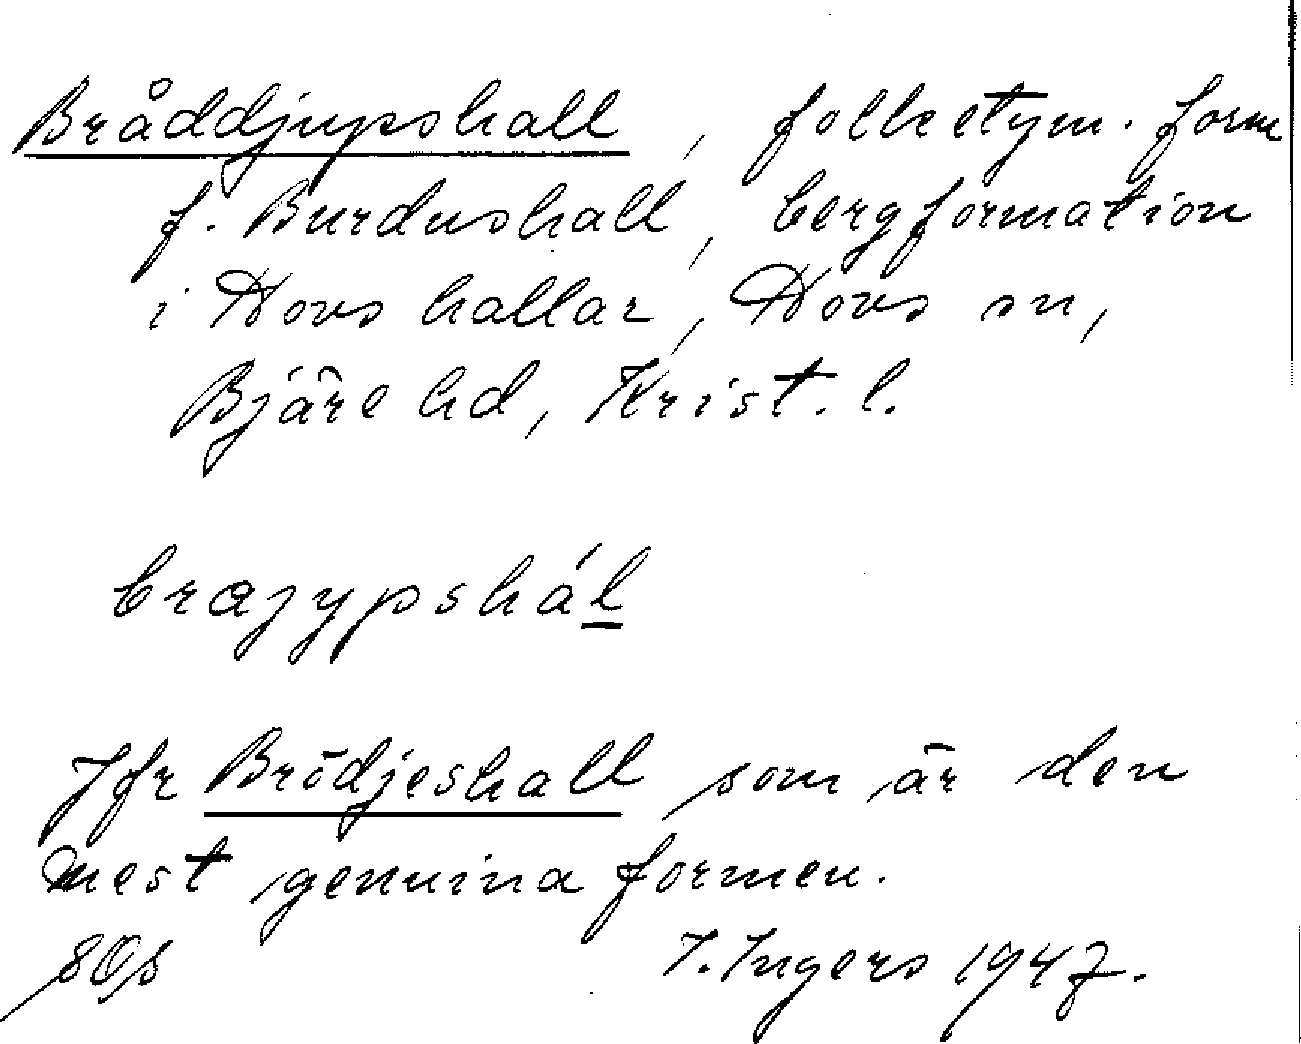 Bråddjupshall, folketym. form
f. Burdushall, bergformation
i Hovs hallar, Hovs sn,
Bjäre hd, Krist. l.
brajypshál
Jfr Brödjeshall som är den
mest genuina formen.
I. Ingers 1947.